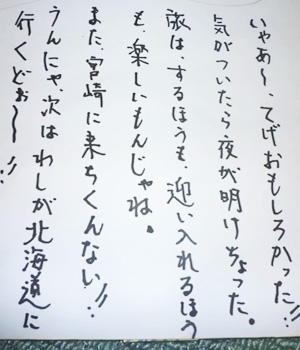 いやあ〜、てげおもしろかった!!
気がついたら夜が明けちょった。
旅は、するほうも、迎い入れるほう
も、楽しいもんじゃね。
また、宮崎に来ちくんない!!
うんにゃ、次はわしが北海道に
行くどぉ〜!!